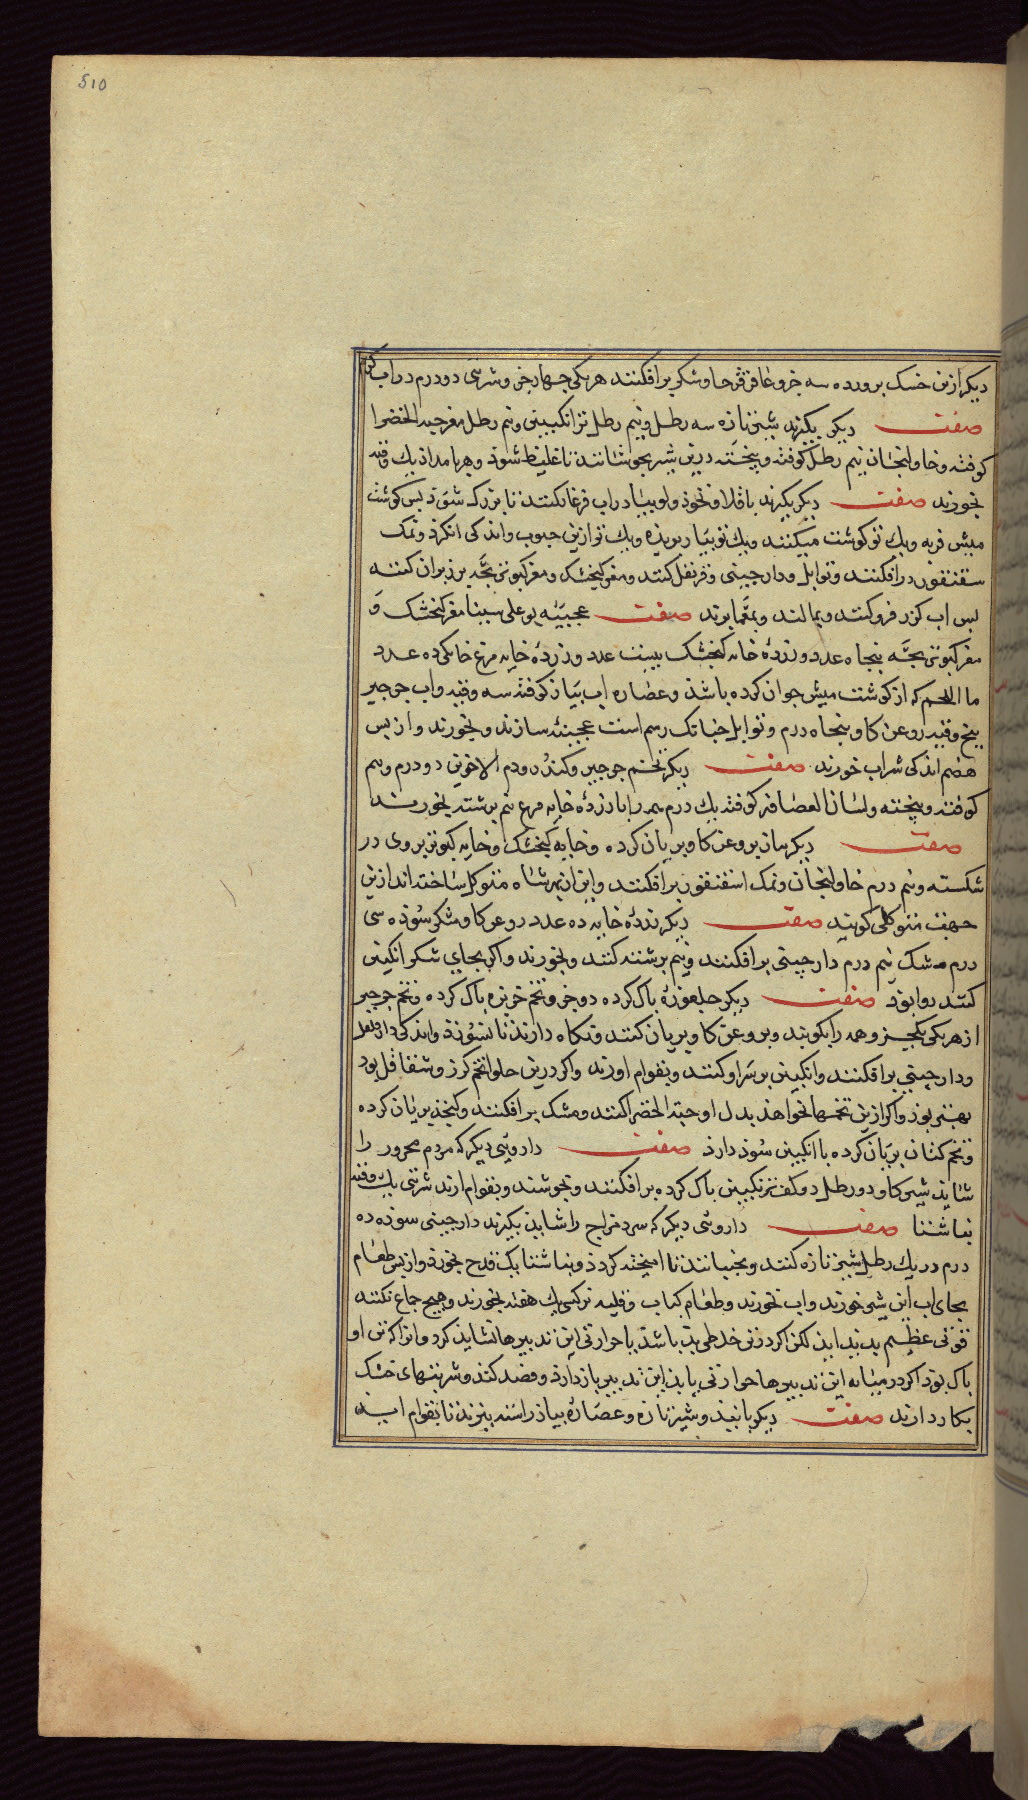 510
دیکر ازین خسک پرورده سه جزو عاقرقرحا و شکر برافکنند هریکی چهار جزو شربتی دو درم در اب گرم
صفت دیکر بکیرند شیر تازه سه رطل و نیم رطل ترانکبین و نیم رطل مغز حبه الخضرا
کوفته و خاولنجان نیم رطل کوفته و بیخته درین شیر بجوشانند تا غلیظ شوذ و هر بامداذ یك وقیه
بخورند صفت دیکر بکیرند باقلا و نخوذ و لوبیا در اب فرغار کنند تا بزرك شوذ پس کوشت
میش فربه و یك تو کوشت میکنند و یك تو پیاز بریده و یك تو ازین حبوب و اندکی انکزد و نمک
سقنقور درافکنند و توابل و دارچینی و قرنفل کنند و مغز کنجشک و مغز کبوتر بچه بر زبر ان کنند
پس اب کزر فرو کنند و بمالند و بنغما پزند صفت عجبیٔه بو علی سینا مغز کنجشک و
مغز کبوتر بچّه پنجاه عدد و زردهٔ خایه کنجشک بیست عدد و زردهٔ خایه مرغ خانکی ده عدد
ما اللحم که از کوشت میش جوان کرده باشذ و عصاره اب پیاز کوفته سه وقیه و اب جرجیر
پنج وقیه روعن کاو پنجاه درم و توابل چنانک رسم است عجبٔنه سازند و بخورند و از پس
هضم اندکی شراب خورند صفت دیکر تخم جرجیر و کندر و دم الاخوین دو درم و نیم
کوفته و بیخته و لسان العصافیر کوفته یك درم همه را با زردهٔ خایه مرغ نیم برشته بخورند
صفت دیکر پیاز بروعن کاو بریان کرده و خایه کنجشک و خایه کبوتر بروی در
شکسته و نیم درم خاولنجان و نمک اسقنقور برافکنند و این از بهر شاه متوکل ساخته اند ازین
جهت متوکلی کویند صفت دیکر زردهٔ خایه ده عدد روعن کاو و شکر سوذه سی
درم مشک نیم درم دارچینی برافکنند و نیم برشته کنند و بخورند و اکر بجای شکر انکبین
کنند روا بوذ صفت دیکر جلغوزه پاک کرده دو جزو تخم خربزه پاک کرده و تخم جرجیر
از هریکی یکجزو همه را بکویند و بروعن کاو بریان کنند و نکاه دارند تا نسوزذ و اندکی دارفلفل
و دارچینی برافکنند و انکبین بر سر او کنند و بقوام اورند و اکر درین حلوا تخم کزر و شقاقل بوذ
بهتر بوذ و اکر ازین تخمها نخواهذ بدل او حبة الخضرا کنند و مشک برافکنند و کنجذ بریان کرده
و تخم کتان بریان کرده با انکبین سوذ دارذ صفت داروئی دیکر که مردم محرور را
شایذ شیر کاو دو رطل دو کف ترنکبین پاک کرده برافکنند و بجوشند و بقوام ارند شربتی یك وقیه
بناشتا صفت داروئی دیکر که سرد مزاج را شایذ بکیرند دارچینی سوذه ده
درم در یك رطل شیر تازه کنند و بجنبانند تا امیخته کردذ و بناشتا یک قدح بخورذ و از پس طعام
بجای اب این شیر خورند و اب نخورند و طعام کباب و قلیه نرکسی یك هفته بخورند و هیچ جماع نکنند
قوتی عظیم پدید ایذ لکن اکر در تن خلطی بذ باشذ یا حرارتی این تدبیرها نشایذ کرد و انرا که تن او
پاک بوذ اکر در میانه این تدبیرها حرارتی یابذ این تدبیر بازدارذ و فصد کند و شربتهای خنک
بکار دارند صفت دیکر بانیذ و شیر تازه و عصارهٔ پیاز راسته بپزند تا بقوام اید